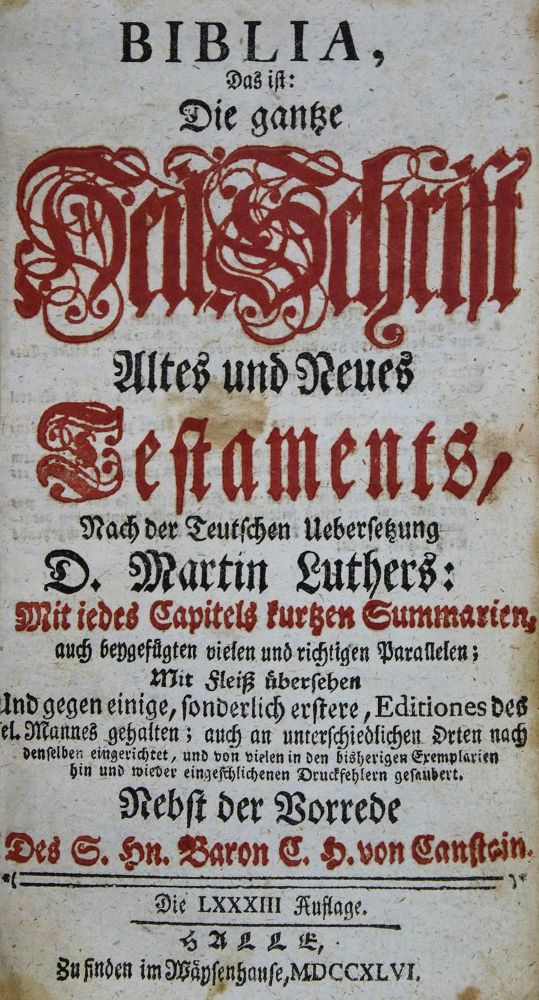 BIBLIA,
Das ist:
Die gantze
Heil. Schrift
Altes und Neues
Testaments,
Nach der Teutschen Uebersetzung
D. Martin Luthers:
Mit iedes Capitels kurtzen Summarien,
auch beygefügten vielen und richtigen Parallelen;
Mit Fleiß übersehen
Und gegen einige, sonderlich erstere, Editiones des
sel. Mannes gehalten; auch an unterschiedlichen Orten nach
denselben eingerichtet, und von vielen in den bisherigen Exemplarien
hin und wieder eingeschlichenen Druckfehlern gesaubert.
Nebst der Vorrede
Des S. Hn. Baron C. H. von Canstein.
Die LXXXIII Auflage.
HALLE,
Zu finden im Wäysenhause, MDCCXLVI.